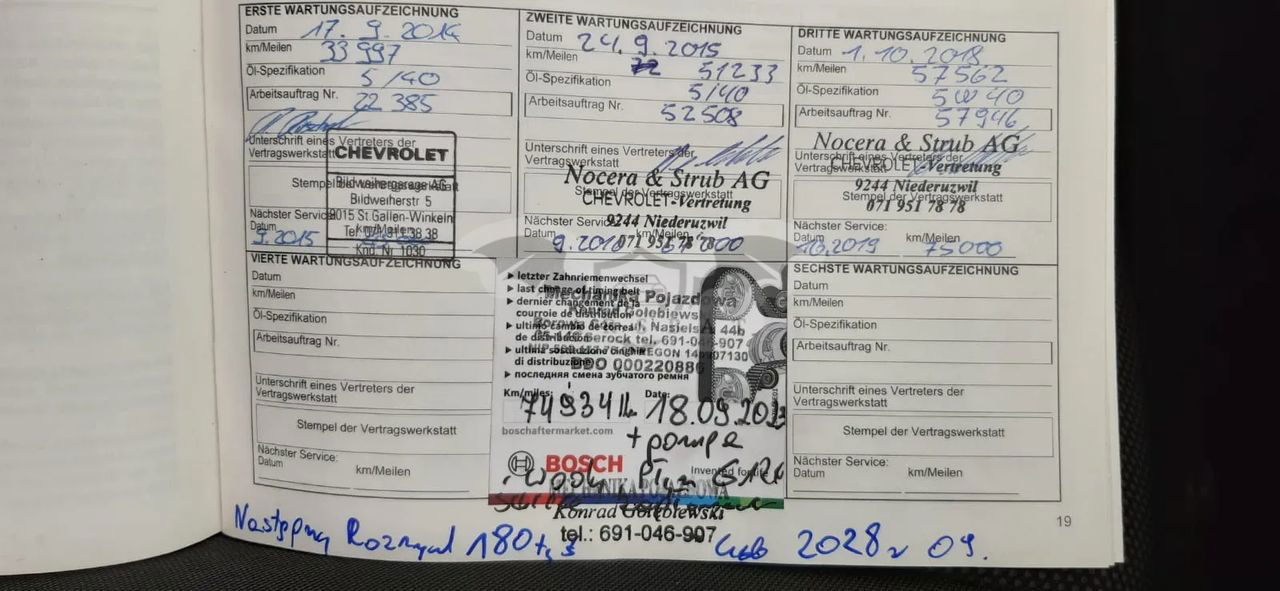 ERSTE WARTUNGSAUFZEICHNUNG
Datum 17. 9. 2014
km/Meilen 33 997
Öl-Spezifikation 5/40
Arbeitsauftrag Nr. 22 385
Unterschrift eines Vertreters der
Vertragswerkstatt
CHEVROLET
Bildweihergarage AG
Bildweiherstr 5
9015 St.Gallen-Winkeln
Nächster Service:
Datum km/Meilen
9.2015
Knd. Nr 1030
ZWEITE WARTUNGSAUFZEICHNUNG
Datum 24. 9. 2015
km/Meilen 51233
Öl-Spezifikation 5/40
Arbeitsauftrag Nr. 52508
Unterschrift eines Vertreters der
Vertragswerkstatt
Nocera & Strub AG
Stempel der Vertragswerkstatt
CHEVROLET-Vertretung
9244 Niederuzwil
071 951 78 78
Nächster Service:
Datum km/Meilen
DRITTE WARTUNGSAUFZEICHNUNG
Datum 1. 10. 2018
km/Meilen 57562
Öl-Spezifikation 5W40
Arbeitsauftrag Nr. 57946
Nocera & Strub AG
Unterschrift eines Vertreters der
Vertragswerkstatt
CHEVROLET-Vertretung
9244 Niederuzwil
Stempel der Vertragswerkstatt
071 951 78 78
Nächster Service:
Datum 10.2019 km/Meilen 75000
VIERTE WARTUNGSAUFZEICHNUNG
Datum
km/Meilen
Öl-Spezifikation
Arbeitsauftrag Nr.
Unterschrift eines Vertreters der
Vertragswerkstatt
Stempel der Vertragswerkstatt
Nächster Service:
Datum km/Meilen
letzter Zahnriemenwechsel
last change of timing belt
Mechanika Pojazdowa
dernier changement de la
courroie de distribution
ultimo cambio de correa
de distribución
Nasielska 44b
Serock tel. 691-046-907
ultima sostituzione cinghia
di distribuzione
BDO 000220886
последняя смена зубчатого ремня
Km/miles: Date:
74934 18.09.2023
boschaftermarket.com
+ pompa
BOSCH
Invented for life
MECHANIKA POJAZDOWA
Konrad Gołębiewski
tel.: 691-046-907
SECHSTE WARTUNGSAUFZEICHNUNG
Datum
km/Meilen
Öl-Spezifikation
Arbeitsauftrag Nr.
Unterschrift eines Vertreters der
Vertragswerkstatt
Stempel der Vertragswerkstatt
Nächster Service:
Datum km/Meilen
19
Następny Rozrząd 180 tyś lub 2028r 09.